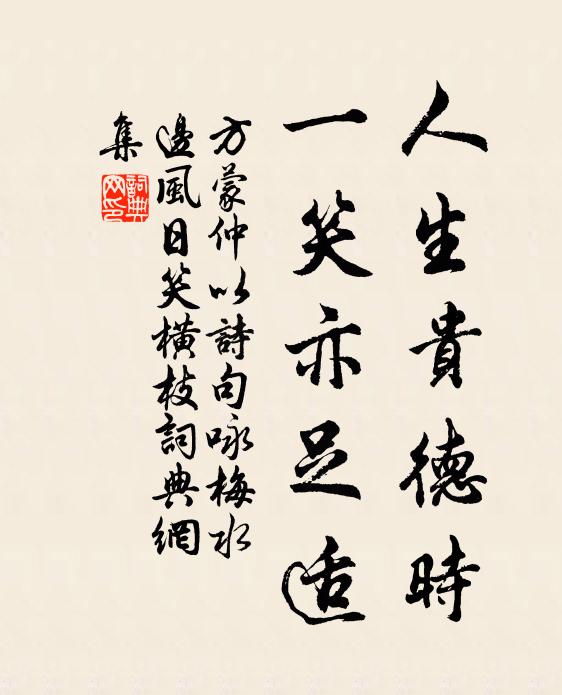 人生貴德時
一笑亦足適
方蒙仲以詩句咏梅水
邊風日笑橫枝詞典網
集
詞典網印